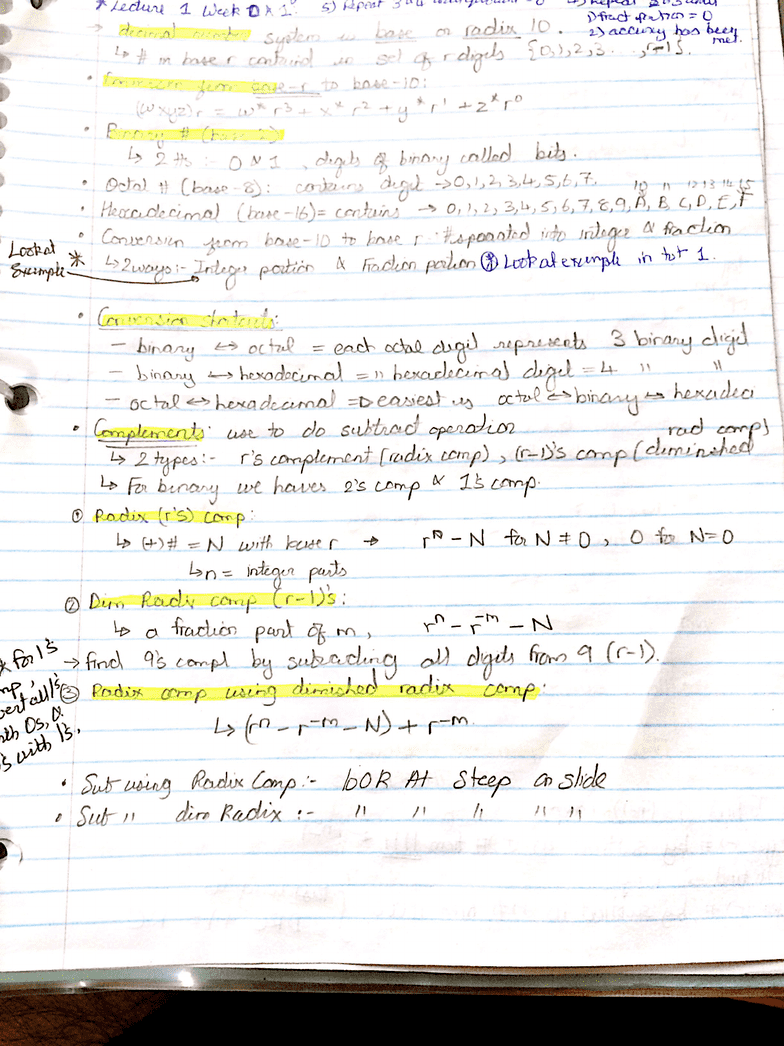 * Lecture 1 Week 0 & 1
5) Repeat 3 &
4) Repeat 2 &
1) fract portion = 0
2) accuracy has been met.
→ decimal number system is base or radix 10.
↳ # in base r contained in set of r digits {0,1,2,3...,r-1}.
• Conversion from base-r to base-10:
(wxyz)r = w*r³ + x*r² + y*r¹ + z*r⁰
• Binary # (base 2)
↳ 2 #s :- 0 & 1, digits of binary called bits.
• Octal # (base-8): contains digit → 0,1,2,3,4,5,6,7.
10 11 12 13 14 15
• Hexadecimal (base-16) = contains → 0,1,2,3,4,5,6,7,8,9,A,B,C,D,E,F
• Conversion from base-10 to base r : # separated into integer & fraction
Look at Example *
↳ 2 ways:- Integer portion & Fraction portion * Look at example in tut 1.
• Conversion shortcuts:
- binary ↔ octal = each octal digit represents 3 binary digit
- binary ↔ hexadecimal = " hexadecimal digit = 4 " "
- octal ↔ hexadecimal => easiest is octal ↔ binary ↔ hexadeci
• Complements: use to do subtract operation
↳ 2 types:- r's complement (radix comp), (r-1)'s comp (diminished rad comp)
↳ For binary we haves 2's comp & 1's comp.
① Radix (r's) comp:
↳ (+)# = N with base r → rⁿ - N for N ≠ 0, 0 for N=0
↳ n = integer parts
② Dim Radix comp (r-1)'s:
↳ a fraction part of m, rⁿ - r⁻ᵐ - N
→ find 9's compl by subtracting all digits from 9 (r-1).
* for 1's
mp,
vert all 1's
ith 0s, &
s with 1's.
③ Radix comp using diminished radix comp:
↳ (rⁿ - r⁻ᵐ - N) + r⁻ᵐ
• Sub using Radix Comp:- LOOK At Steep on slide
• Sub " dim Radix :- " " " " "